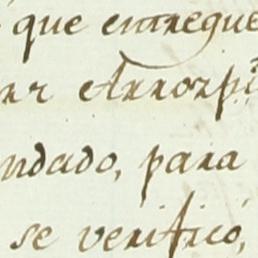 que entregue
Arrospi
ndado, para
se verificó,